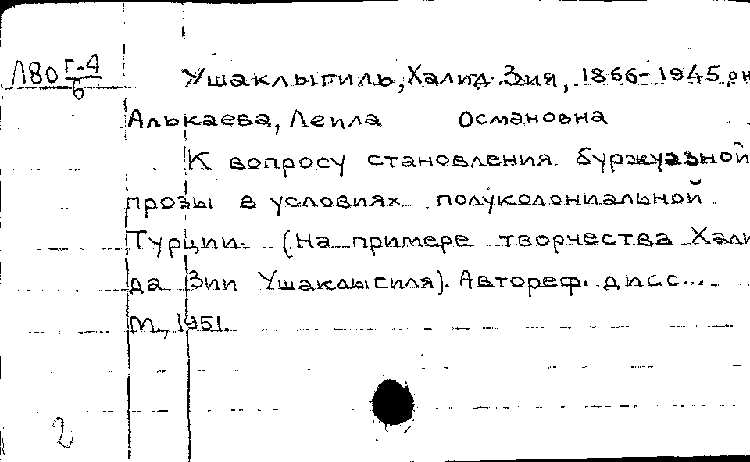 Л80 Г-4/6
Ушаклыгиль, Халид Зия, 1866-1945, о н
Алькаева, Леила Османовна
К вопросу становления буржуазной
прозы в условиях полуколониальной
Турции. (На примере творчества Хали
да Зии Ушаклысиля). Автореф. дисс...
М., 1951.
2